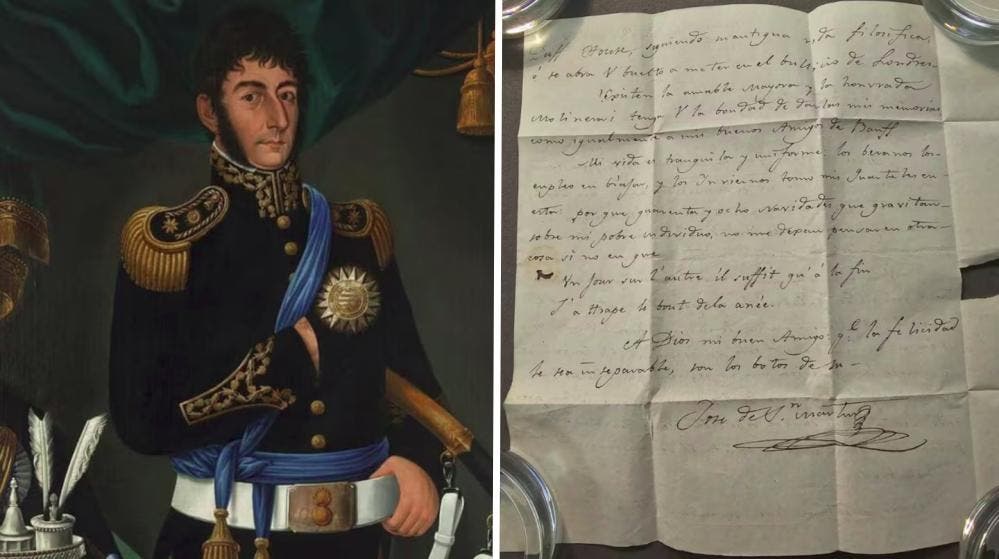 Duff House, siguiendo mantigua vida filosofica,
ó se abra V buelto a meter en el bullicio de Londres
Existen la amable Mayora y la honrrada
Molinera: tenga V la bondad de darlas mis memorias
como igualmente a mis buenos Amigos de Banff
Mi vida es tranquila y uniforme: los beranos los
empleo en biajar, y los Inviernos tomo mis Quarteles en
esta: por que quarenta y ocho navidades que gravitan
sobre mi pobre individuo, no me dejan pensar en otra
cosa si no en que
Un Jour sur l'autre il suffit qu'à la fin
J'attrape le bout de la anée.
A Dios mi buen Amigo: q.e la felicidad
le sea inseparable, son los botos de su
Jose de S.n Martin